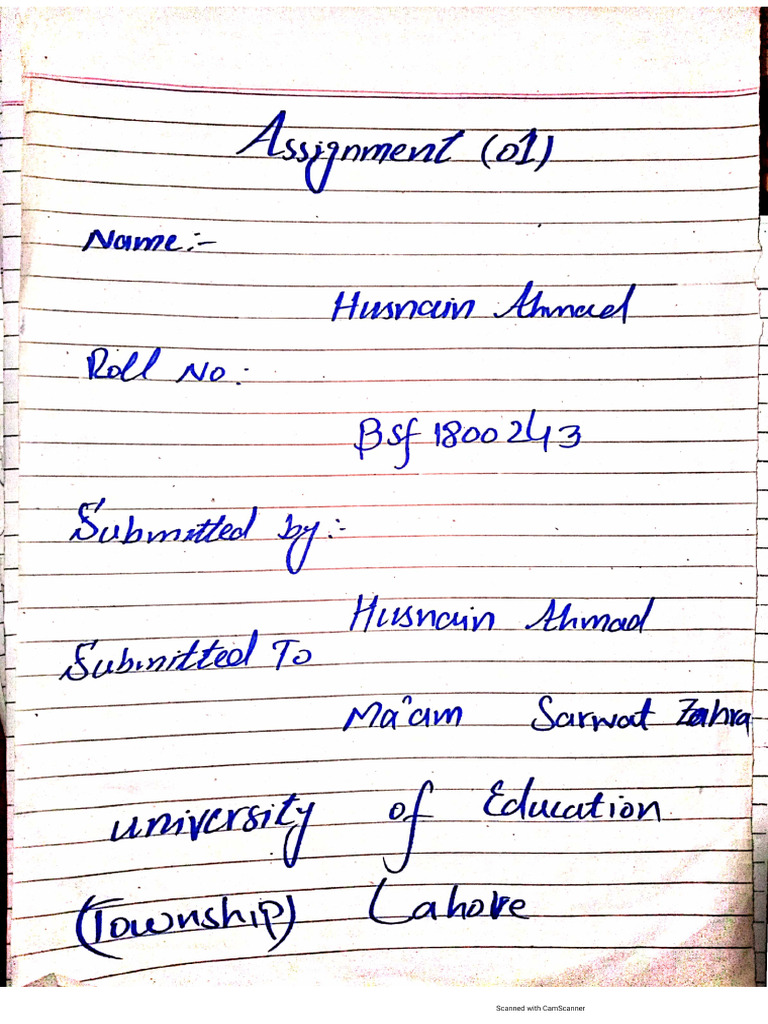 Assignment (01)
Name:-
Husnain Ahmad
Roll No:
Bsf 1800243
Submitted by:-
Husnain Ahmad
Submitted To
Ma'am Sarwat Zahra
university of Education
(Township) Lahore
Scanned with CamScanner